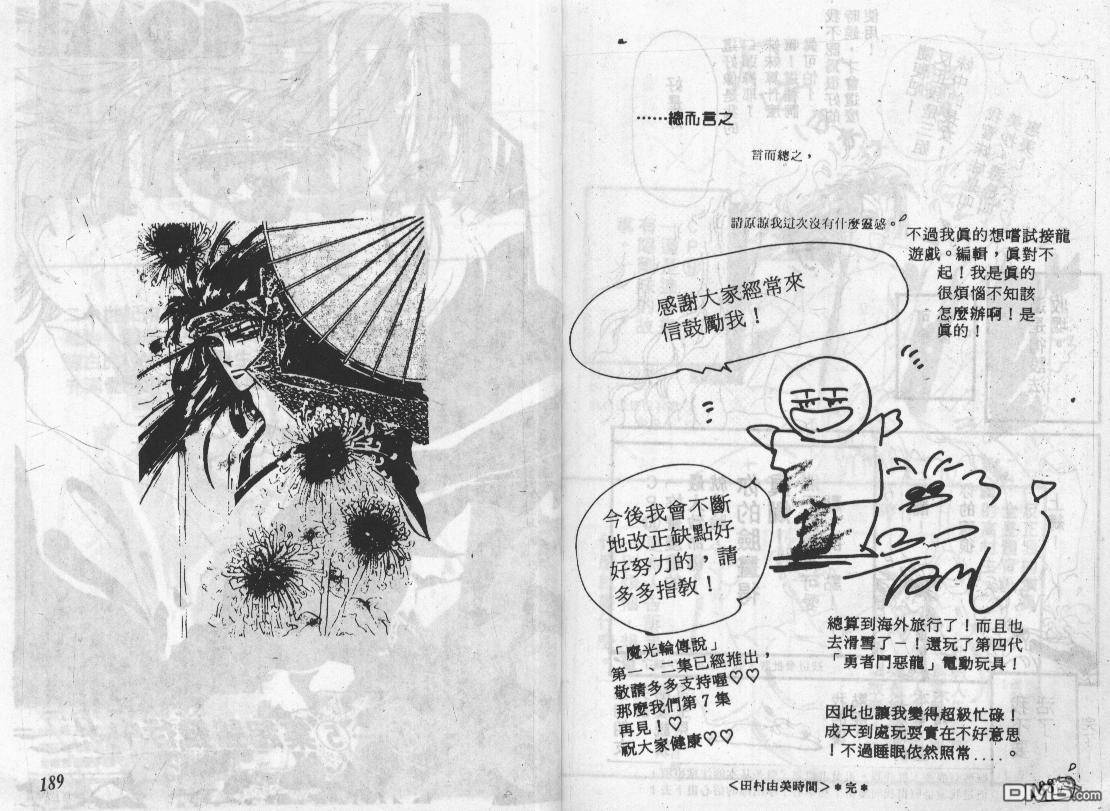 ……總而言之
言而總之，
請原諒我這次沒有什麼靈感。
不過我眞的想嚐試接龍
遊戲。編輯，眞對不
起！我是眞的
很煩惱不知該
怎麼辦啊！是
眞的！
感謝大家經常來
信鼓勵我！
今後我會不斷
地改正缺點好
好努力的，請
多多指敎！
「魔光輪傳說」
第一、二集已經推出，
敬請多多支持喔♡♡
那麼我們第7集
再見！♡
祝大家健康♡♡
總算到海外旅行了！而且也
去滑雪了－！還玩了第四代
「勇者鬥惡龍」電動玩具！
因此也讓我變得超級忙碌！
成天到處玩耍實在不好意思
！不過睡眠依然照常....。
<田村由美時間>＊完＊
189
DM5.com